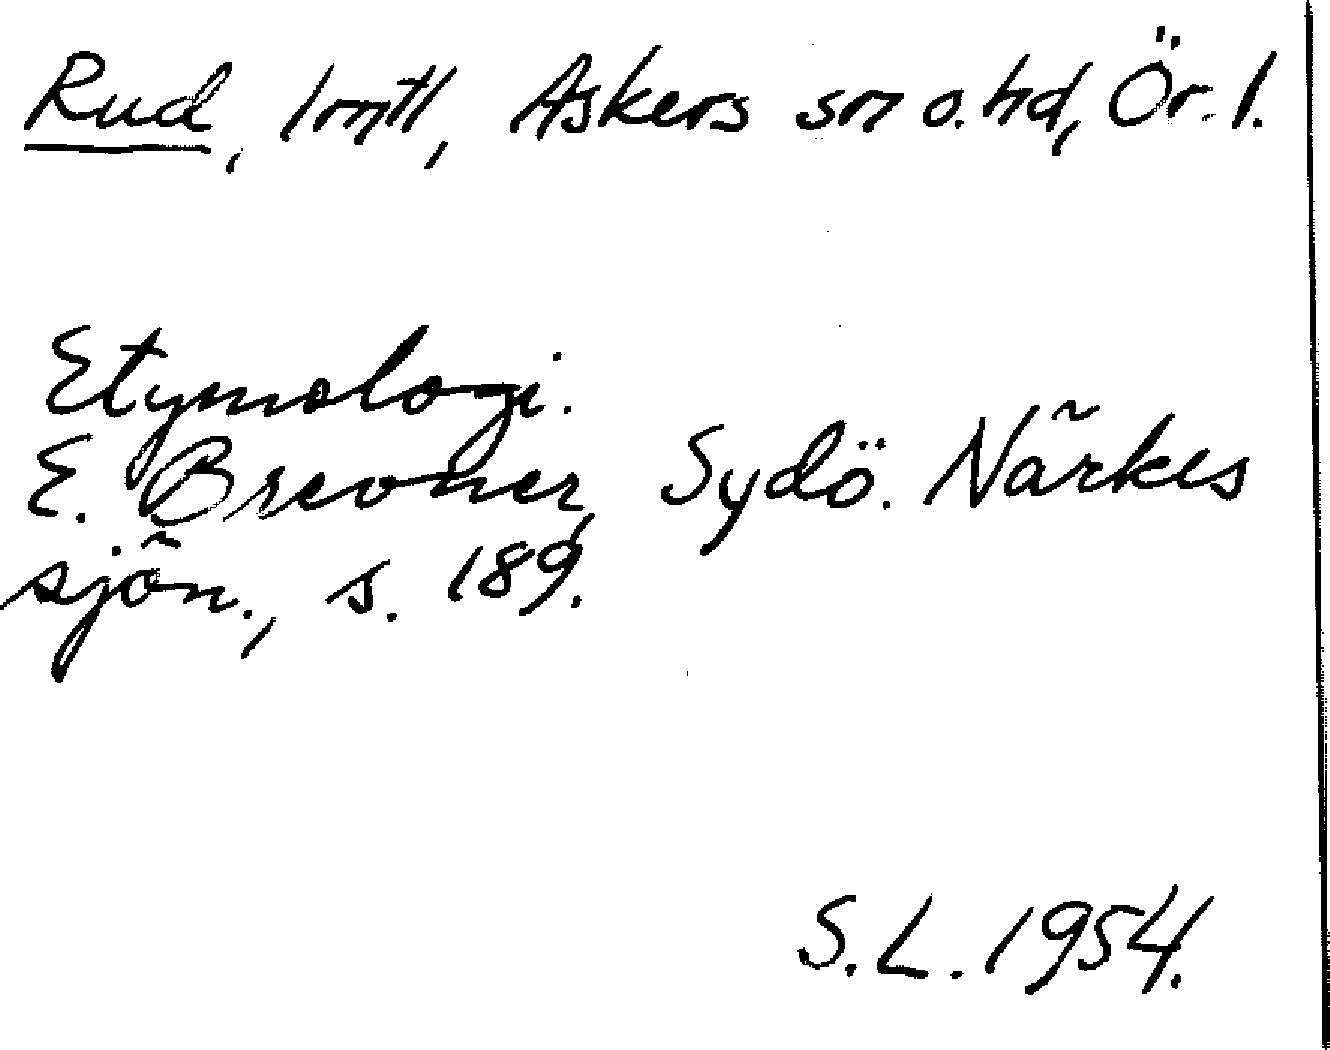 Rud, lmtl, Askers sn o. hd, Ör. l.
Etymologi.
E. Brevner, Sydö. Närkes
sjön., s. 189.
S.L. 1954.